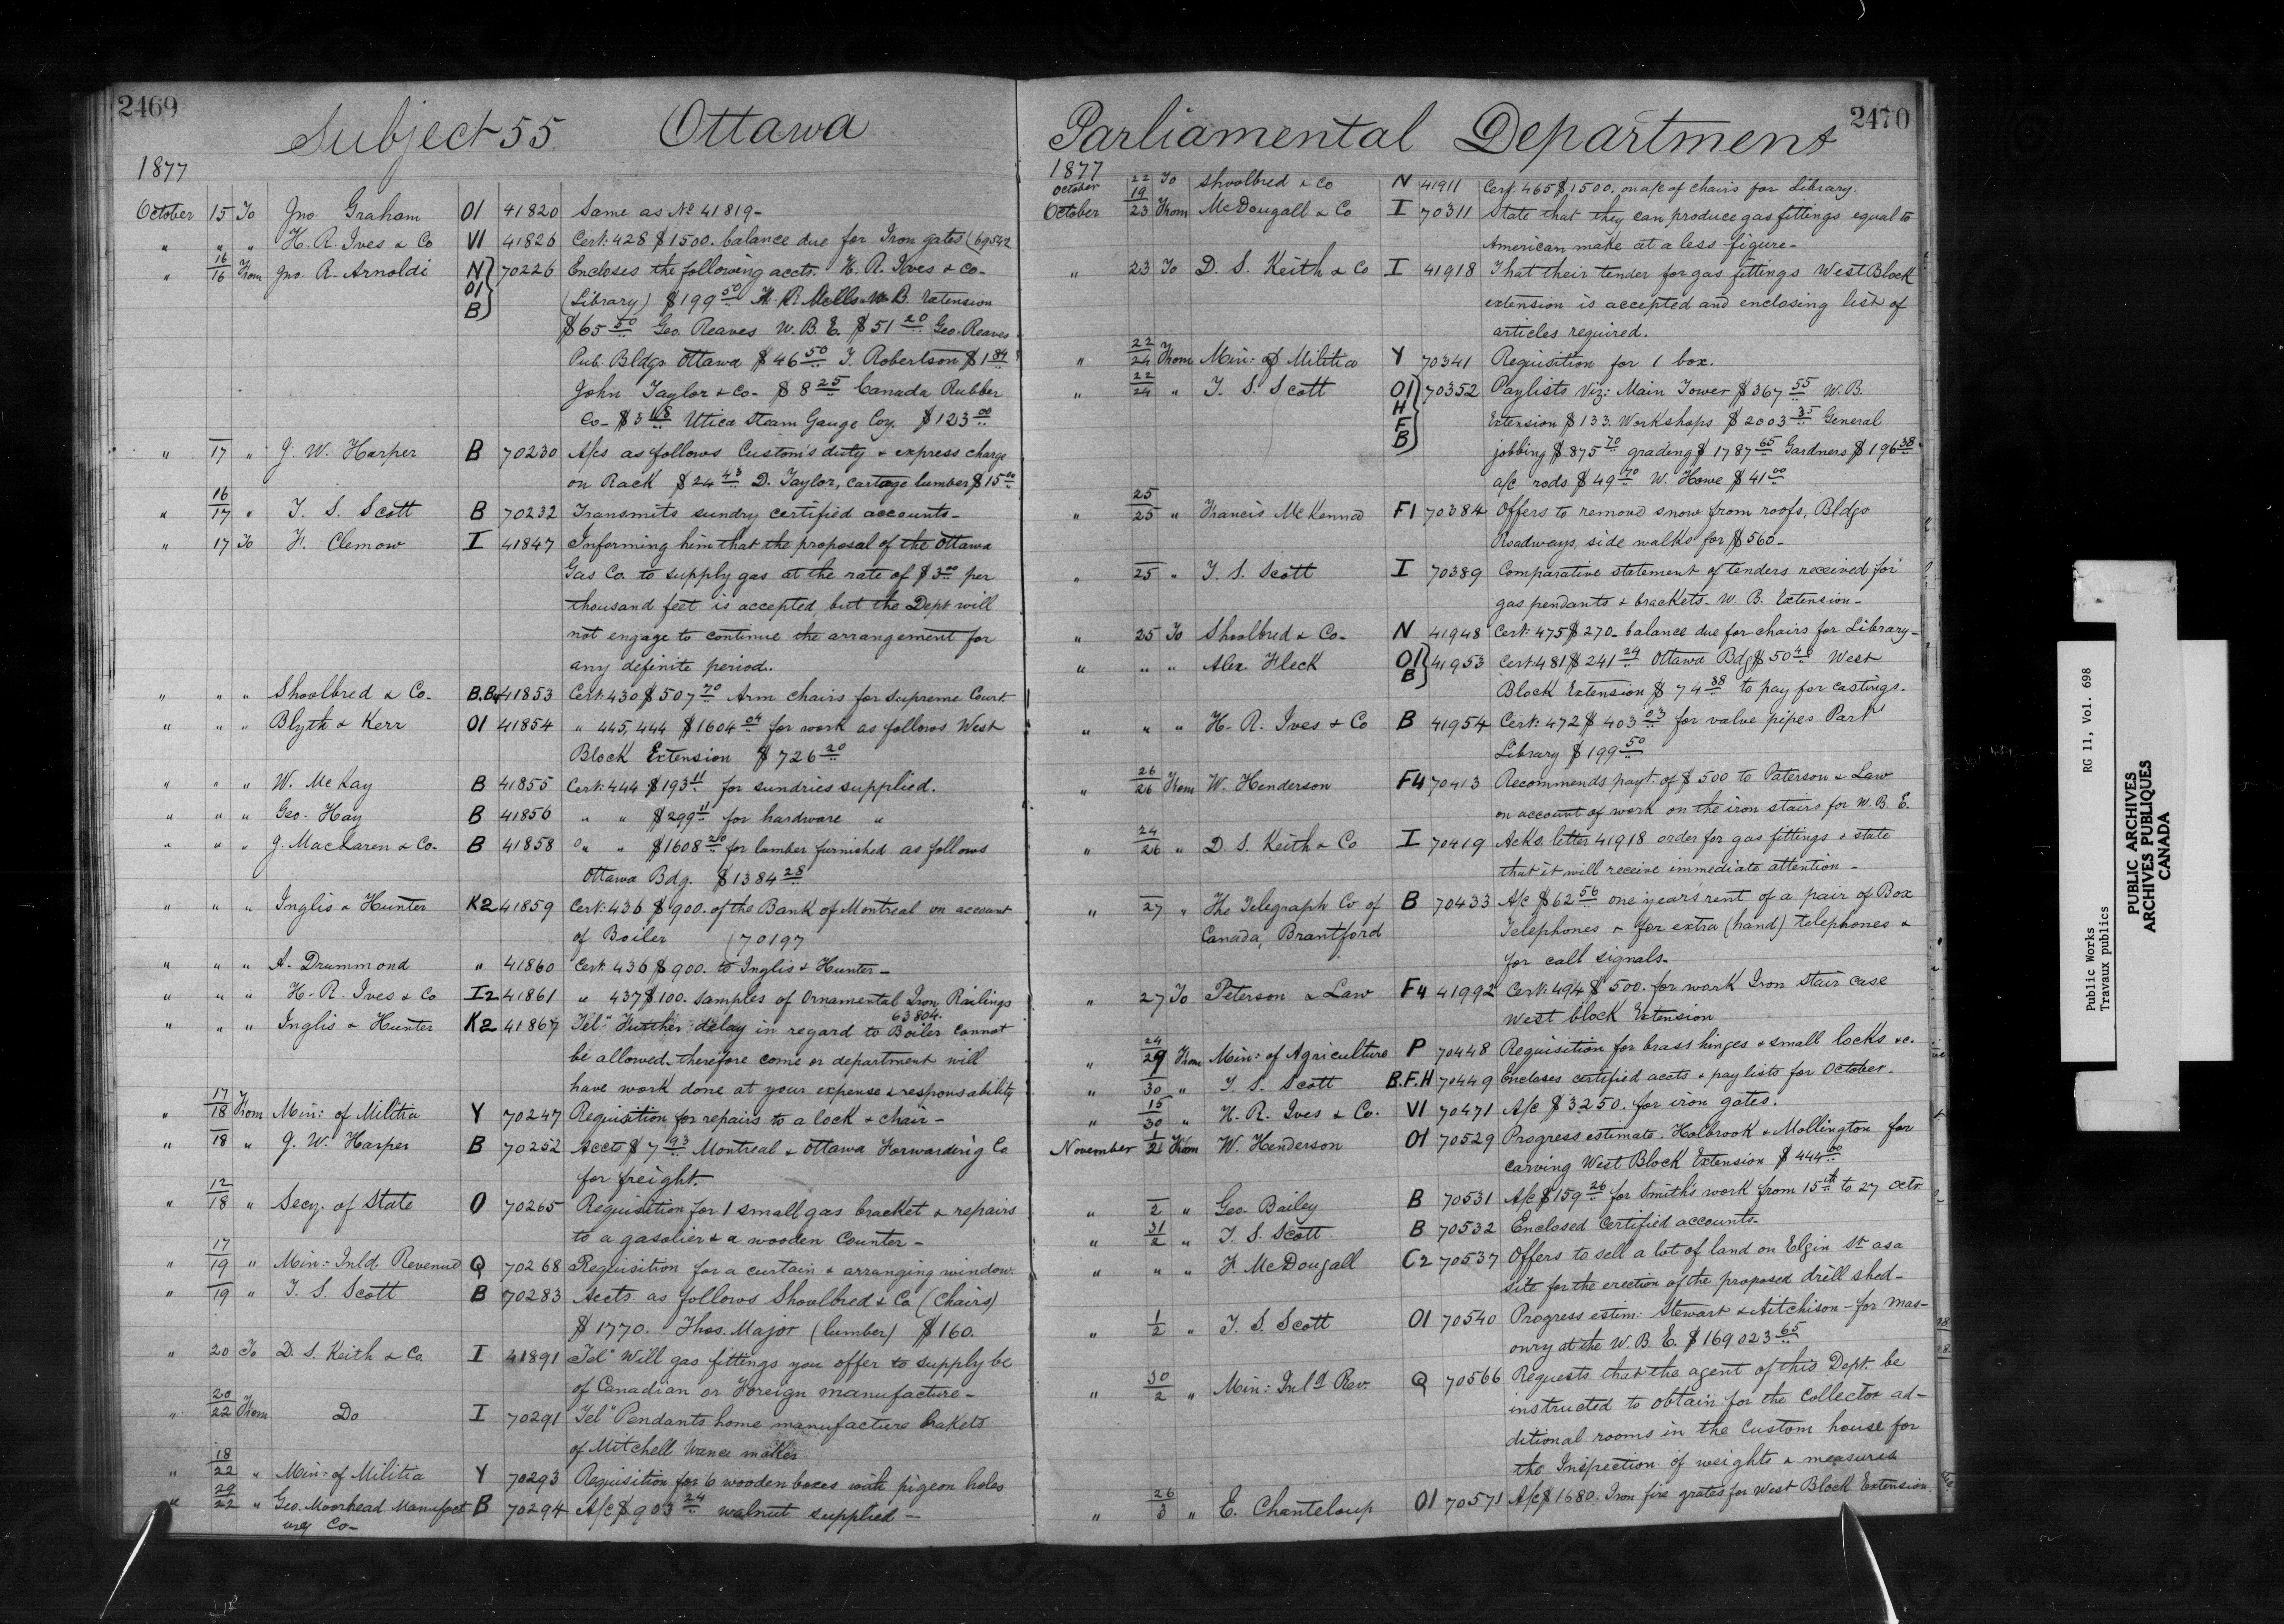 2469
Subject 55 Ottawa
1877
October 15 To Jno Graham O1 41820 Same as No 41819-
" " " H. R. Ives & Co V1 41826 Cert. 428 $1500. balance due for Iron gates (69542
" 16/16 From Jno. R. Arnoldi N 70226 Encloses the following accts. H. R. Ives & Co-
O1 (Library) $199 50 W. B. Extension
B $65 50 Geo. Reaves W. B. E. $51 20 Geo. Reaves
Pub. Bldgs Ottawa $46 50 T. Robertson $1 84
John Taylor & Co- $8 25 Canada Rubber
Co- $3 18 Utica Steam Gauge Coy. $123 00
" 17 " J. W. Harper B 70230 A/cs as follows Custom's duty & express charge
on Rack $24 43 D. Taylor, cartage lumber $15 00
" 16/17 " T. S. Scott B 70232 Transmits sundry certified accounts-
" 17 To F. Clemow I 41847 Informing him that the proposal of the Ottawa
Gas Co. to supply gas at the rate of $3 00 per
thousand feet is accepted but the Dept will
not engage to continue the arrangement for
any definite period.
" " " Shoolbred & Co- 41853 Cert. 430 $507 70 Arm chairs for Supreme Court.
" " " Blyth & Kerr O1 41854 " 445, 444 $1604 04 for work as follows West
Block Extension $726 20
" " " W. McKay B 41855 Cert. 444 $193 11 for sundries supplied.
" " " Geo. Hay B 41856 " " $299 11 for hardware "
" " " J. Maclaren & Co- B 41858 " " $1608 20 for lumber furnished as follows
Ottawa Bdg. $1384 28
" " " Inglis & Hunter K2 41859 Cert. 436 $900. of the Bank of Montreal on account
of Boiler (70197
" " " A. Drummond " 41860 Cert. 436 $900. to Inglis & Hunter-
" " " H. R. Ives & Co I2 41861 " 437 $100. Samples of Ornamental Iron Railings
63804.
" " " Inglis & Hunter K2 41867 Tel" Further delay in regard to Boiler cannot
be allowed- therefore come or department will
have work done at your expense & responsability
" 17/18 From Min: of Militia Y 70247 Requisition for repairs to a lock & chair-
" 18 " J. W. Harper B 70252 Accts $7 93 Montreal & Ottawa Forwarding Co
for freight.
" 12/18 " Secy. of State O 70265 Requisition for 1 small gas bracket & repairs
to a gasolier & a wooden counter-
" 17/19 " Min:- Inld. Revenue Q 70268 Requisition for a curtain & arranging window.
" 19 " T. S. Scott B 70283 Accts. as follows Shoolbred & Co (Chairs)
$1770. Thos. Major (lumber) $160.
" 20 To D. S. Keith & Co. I 41891 Tel" Will gas fittings you offer to supply be
of Canadian or Foreign manufacture-
" 20/22 From Do I 70291 Tel" Pendants home manufacture brakets
of Mitchell Vance make
" 18/22 " Min: of Militia Y 70293 Requisition for 6 wooden boxes with pigeon holes
" 29/22 " Geo. Moorhead Manufact B 70294 A/c $903 24 walnut supplied-
urg Co-
2470
Parliamental Department
1877
October 22/19 To Shoolbred & Co N 41911 Cert. 465 $1500. on a/c of chairs for Library.
October 23 From McDougall & Co I 70311 State that they can produce gas fittings equal to
American make at a less figure-
" 23 To D. S. Keith & Co I 41918 That their tender for gas fittings West Block
extension is accepted and enclosing list of
articles required.
" 22/24 From Min: of Militia Y 70341 Requisition for 1 box.
" 22/24 " T. S. Scott O1 70352 Paylists Viz: Main Tower $367 55 W. B.
H Extension $133. Workshops $2003 35 General
F jobbing $875 70 grading $1787 65 Gardners $196 38
B a/c rods $49 70 W. Howe $41 00
" 25/25 " Francis McKenna F1 70384 Offers to remove snow from roofs, Bldgs
Roadways, side walks for $560-
" 25 " T. S. Scott I 70389 Comparative statement of tenders received for
gas pendants & brackets- W. B. Extension-
" 25 To Shoolbred & Co- N 41948 Cert. 475 $270- balance due for chairs for Library-
" " " Alex. Fleck O1 B 41953 Cert. 481 $241 24 Ottawa Bdg $50 40 West
Block Extension $74 38 to pay for castings.
" " " H. R. Ives & Co B 41954 Cert. 472 $403 03 for valve pipes Part
Library $199 50
" 26/26 From W. Henderson F4 70413 Recommends payt. of $500 to Paterson & Law
on account of work on the iron stairs for W. B. E.
" 24/26 " D. S. Keith & Co I 70419 Acks. letter 41918 order for gas fittings & state
that it will receive immediate attention-
" 27 " The Telegraph Co of B 70433 A/c $62 56 one year's rent of a pair of Box
Canada, Brantford Telephones & for extra (hand) telephones &
for call signals-
" 27 To Peterson & Law F4 41992 Cert. 494 $500. for work Iron Stair case
West block Extension
" 24/29 From Min: of Agriculture P 70448 Requisition for brass hinges & small locks &c.
" 30 " T. S. Scott B.F.H 70449 Encloses certified accts & paylists for October-
" 15/30 " H. R. Ives & Co. V1 70471 A/c $3250. for iron gates.
November 1/2 From W. Henderson O1 70529 Progress estimate. Holbrook & Mollington for
carving West Block Extension $444 00
" 2 " Geo. Bailey B 70531 A/c $159 26 for Smith's work from 15th to 27 Octr
" 31/2 " T. S. Scott B 70532 Enclosed certified accounts-
" " " F. McDougall C2 70537 Offers to sell a lot of land on Elgin St as a
site for the erection of the proposed drill shed-
" 1/2 " T. S. Scott O1 70540 Progress estim: Stewart & Aitchison- for mas-
onry at the W. B. E. $169023 65
" 30/2 " Min: Inld Rev. Q 70566 Requests that the agent of this Dept. be
instructed to obtain for the Collector ad-
ditional rooms in the Custom house for
the Inspection of weights & measures
" 26/3 " E. Chanteloup O1 70571 A/c $1680. Iron fire grates for West Block Extension.
Public Works RG 11, Vol. 698
Travaux publics
PUBLIC ARCHIVES
ARCHIVES PUBLIQUES
CANADA